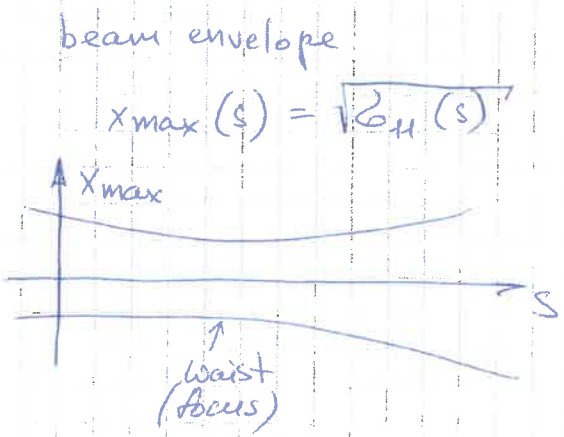 beam envelope
xmax (s) = √σ₁₁ (s)
xmax
s
waist
(focus)